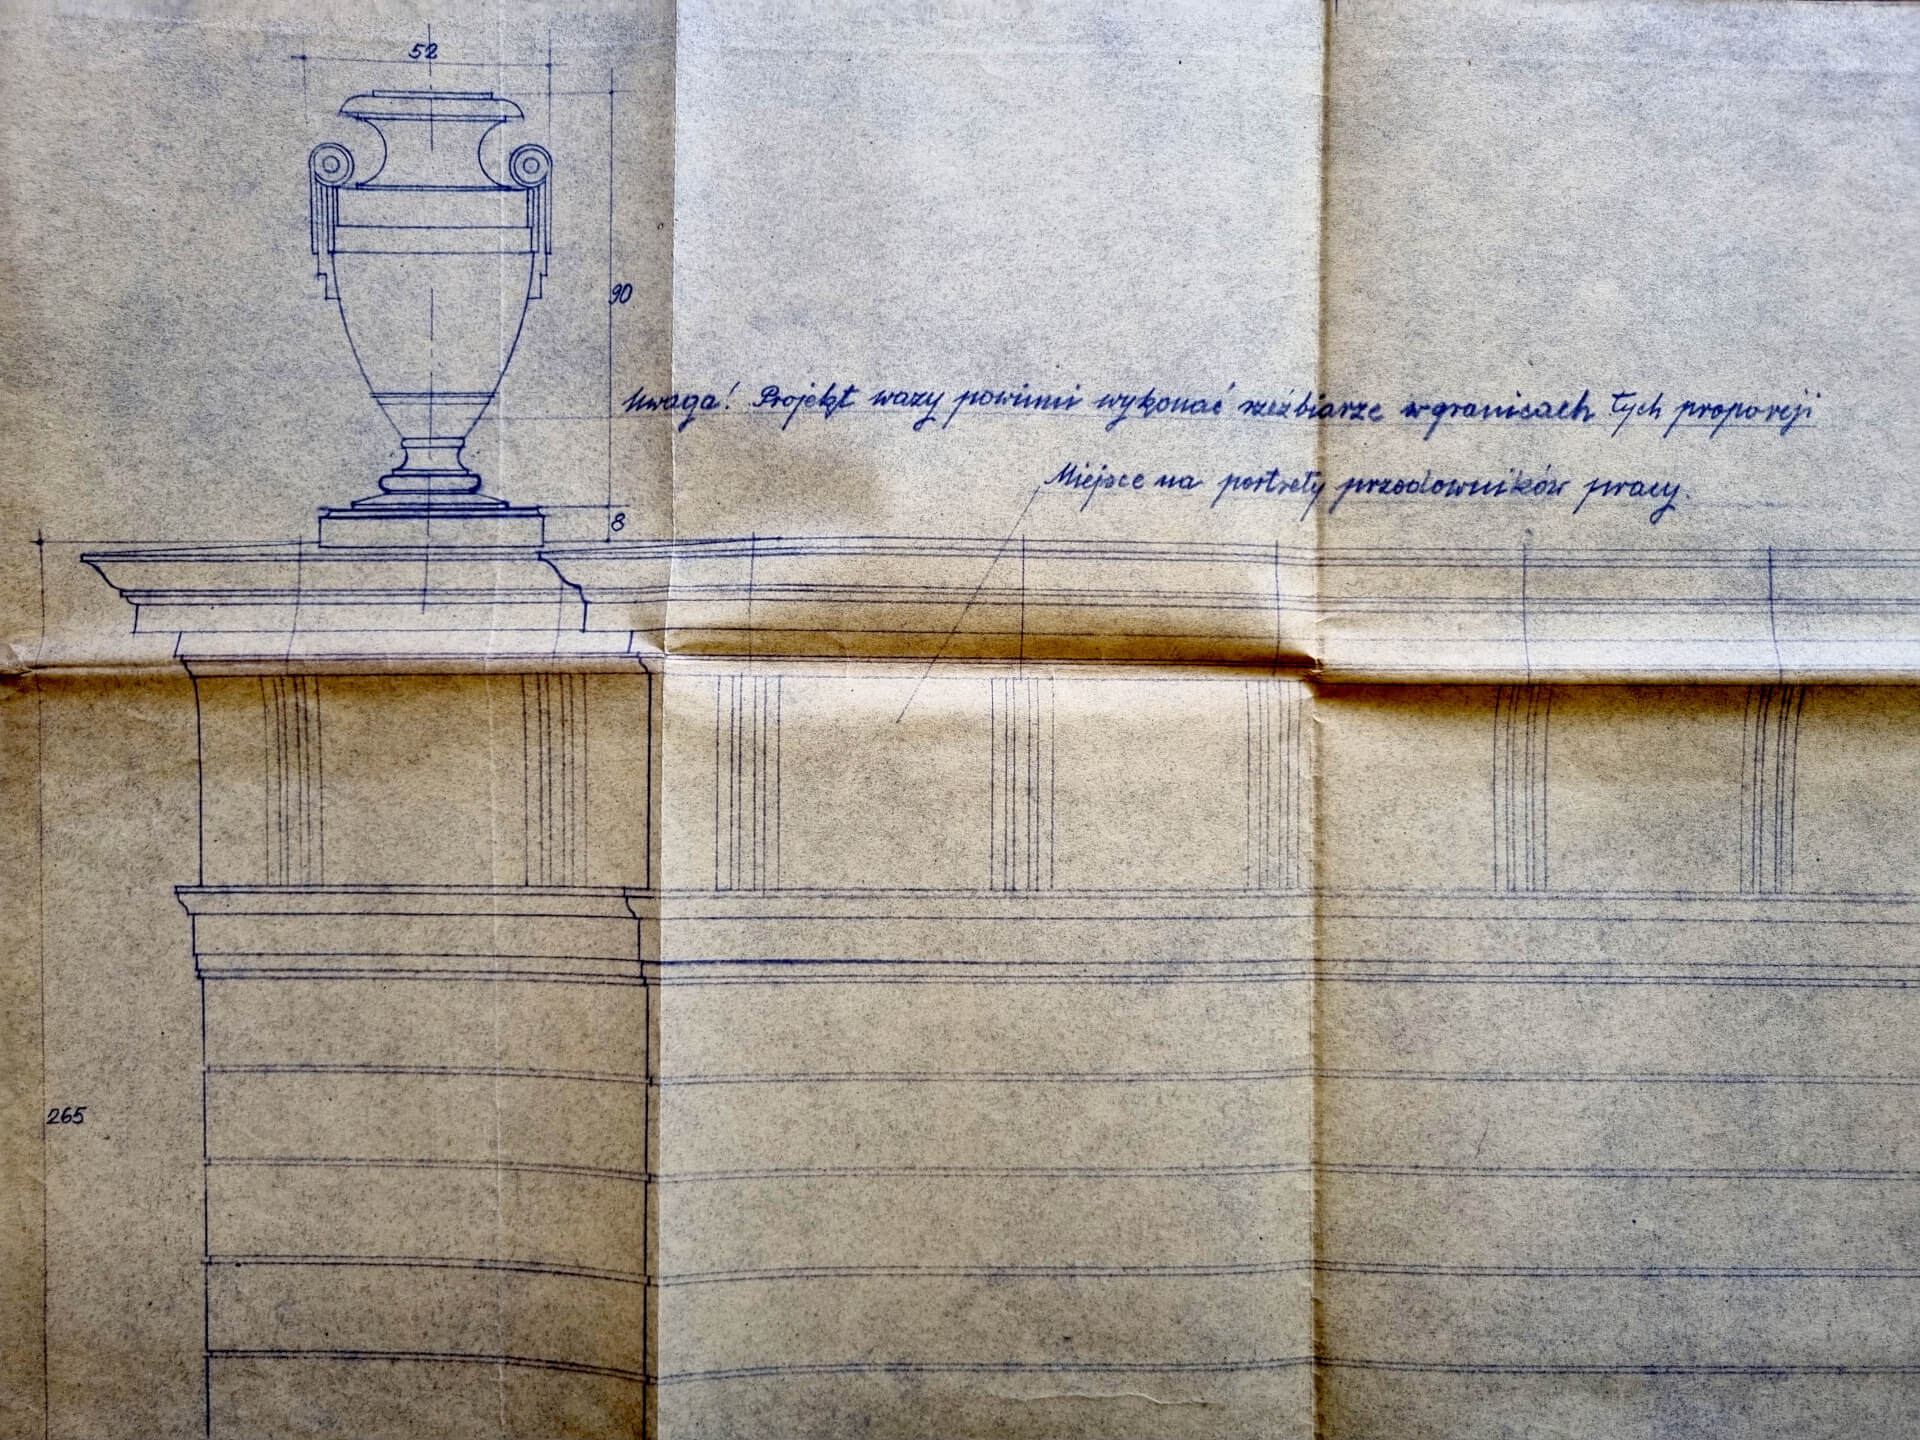 52
90
Uwaga! Projekt wazy powinni wykonać rzeźbiarze w granicach tych proporcji
Miejsce na portrety przodowników pracy.
8
265